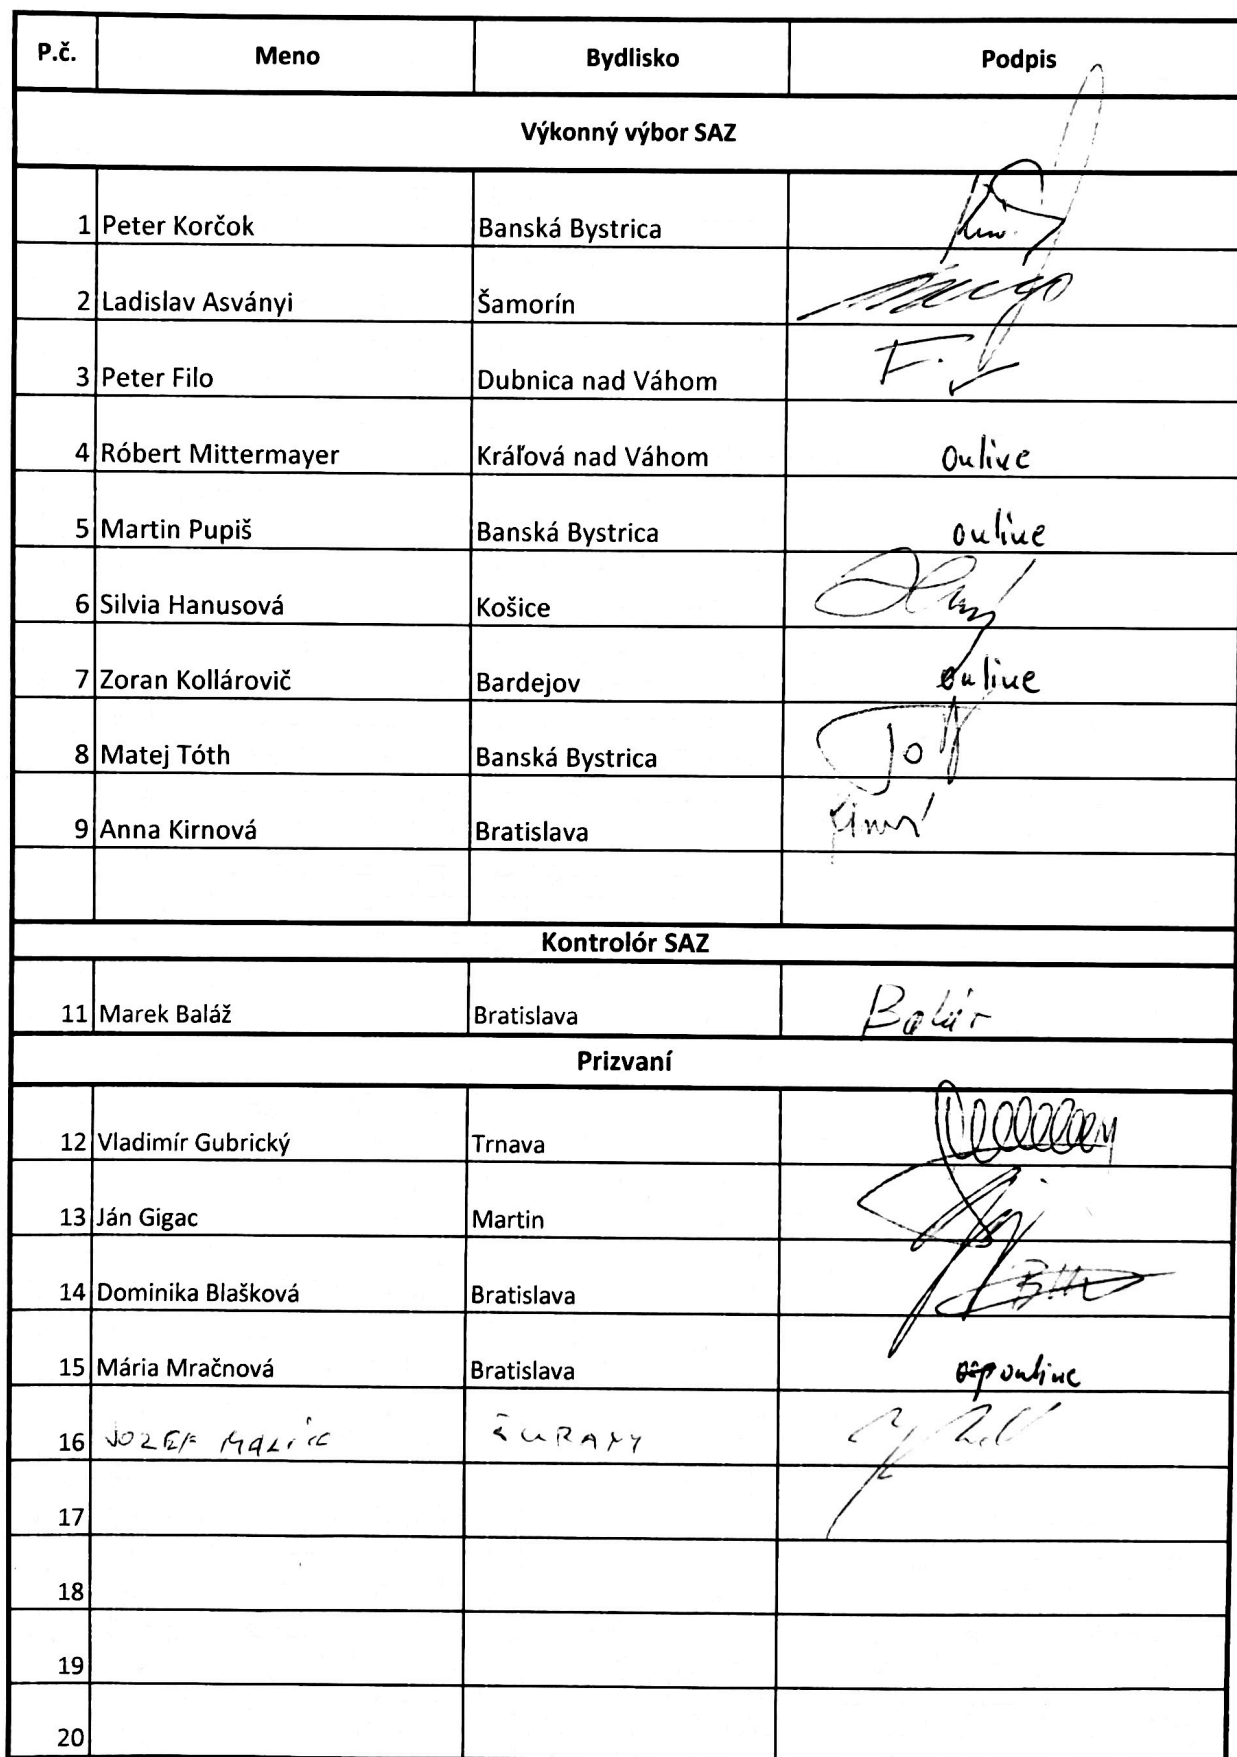 P.č. Meno Bydlisko Podpis
Výkonný výbor SAZ
1 Peter Korčok Banská Bystrica
2 Ladislav Asványi Šamorín
3 Peter Filo Dubnica nad Váhom F.
4 Róbert Mittermayer Kráľová nad Váhom Online
5 Martin Pupiš Banská Bystrica online
6 Silvia Hanusová Košice
7 Zoran Kollárovič Bardejov online
8 Matej Tóth Banská Bystrica
9 Anna Kirnová Bratislava
Kontrolór SAZ
11 Marek Baláž Bratislava
Prizvaní
12 Vladimír Gubrický Trnava
13 Ján Gigac Martin
14 Dominika Blašková Bratislava
15 Mária Mračnová Bratislava online
16 JOZEF ŠURANY
17
18
19
20